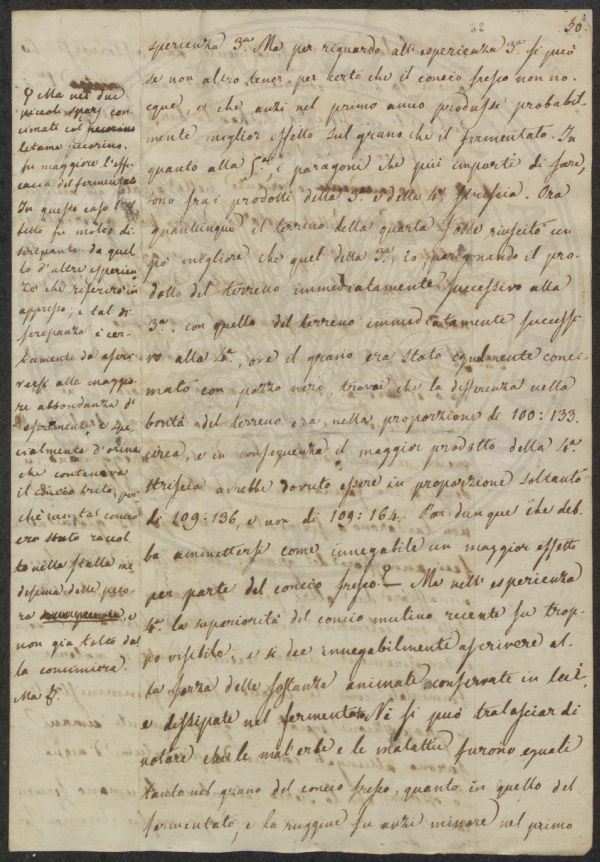 50.
sperienza 3.a Ma per riguardo all' esperienza 3.a si può
se non altro tener per certo che il concio fresco non no-
cque, e che anzi nel primo anno produsse probabil-
mente miglior effetto sul grano che il fermentato. In
quanto alla 5.a, i paragoni che più importi di fare,
sono fra i prodotti della 3.a e della 4.a striscia. Ora
quantunque il terreno della quarta fosse riuscito un
po' migliore che quel della 3.a, io paragonando il pro-
dotto del terreno immediatamente successivo alla
3.a, con quello del terreno immediatamente successi-
vo alla 4.a, ove il grano era stato egualmente conci-
mato con pozzo nero, trovai che la differenza nella
bontà del terreno era nella proporzione di 100: 133
circa, e in conseguenza il maggior prodotto della 4.a
striscia avrebbe dovuto essere in proporzione soltanto
di 109: 136, e non di 109: 164. Par dunque che deb-
ba ammettersi come innegabile un maggior effetto
per parte del concio fresco. Ma nell' esperienza
4.a la superiorità del concio mulino recente fu trop-
po visibile, e si dee innegabilmente ascrivere al-
la forza delle sostanze animate conservate in lui,
e dissipate nel fermentato. Nè si può tralasciar di
notare che le mal'erbe e le malattie furono eguali
tanto nel grano del concio fresco, quanto in quello del
fermentato, e la ruggine fu anzi minore nel primo
Ma nei due
piccoli spazj con-
cimati col
letame pecorino
fu maggiore l'effi-
cacia del fermentato
In questo caso l'ef-
fetto fu molto di-
screpante da quel-
lo d'altre esperien-
ze che riferirò in
appresso; e tal di-
screpanza è cer-
tamente da ascri-
versi alla maggio-
re abbondanza di
escrementi e spe-
cialmente d'orina
che conteneva
il concio trito, per-
chè cavatal concio
era stato raccol-
to nella stalla me-
desima delle peco-
re e
non già tolto dal
la concimiera.
Ma